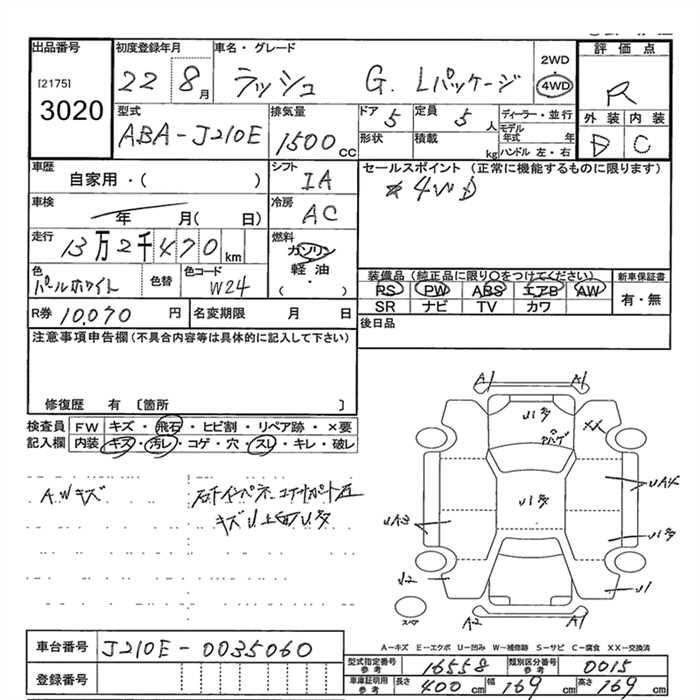 出品番号 初度登録年月 車名・グレード 評価点
[2175] 3020
22 8月 ラッシュ G. Lパッケージ 2WD 4WD R
型式 ABA-J210E 排気量 1500cc ドア 5 定員 5人 ディーラー・並行 外装 内装
形状 積載 kg モデル年式 年 ハンドル 左・右 D C
車歴 自家用・( ) シフト IA セールスポイント (正常に機能するものに限ります)
4WD
車検 年 月( 日) 冷房 AC
走行 13万2千470km 燃料 ガソリン 軽油 ( ・ )
装備品(純正品に限り○をつけてください) 新車保証書
色 パールホワイト 色替 色コード W24 RS PW ABS エアB AW 有・無
SR ナビ TV カワ
R券 10,070円 名変期限 月 日 後日品
注意事項申告欄(不具合内容等は具体的に記入して下さい)
修復歴 有 〔箇所 〕
検査員記入欄 FW キズ・飛石・ヒビ割・リペア跡・×要
内装 キズ・汚レ・コゲ・穴・スレ・キレ・破レ
A1 A1
Uタ
XX
A.Wキズ
キズU上面Uタ
Uタ UA4
UA3 Uタ
U2 U1
スペア A2 A1
A―キズ E―エクボ U―凹み W―補修跡 S―サビ C―腐食 XX―交換済
車台番号 J210E-0035060
型式指定番号 参考 16558 類別区分番号 参考 0015
登録番号
車庫証明用 参考 長さ 400cm 幅 169cm 高さ 169cm